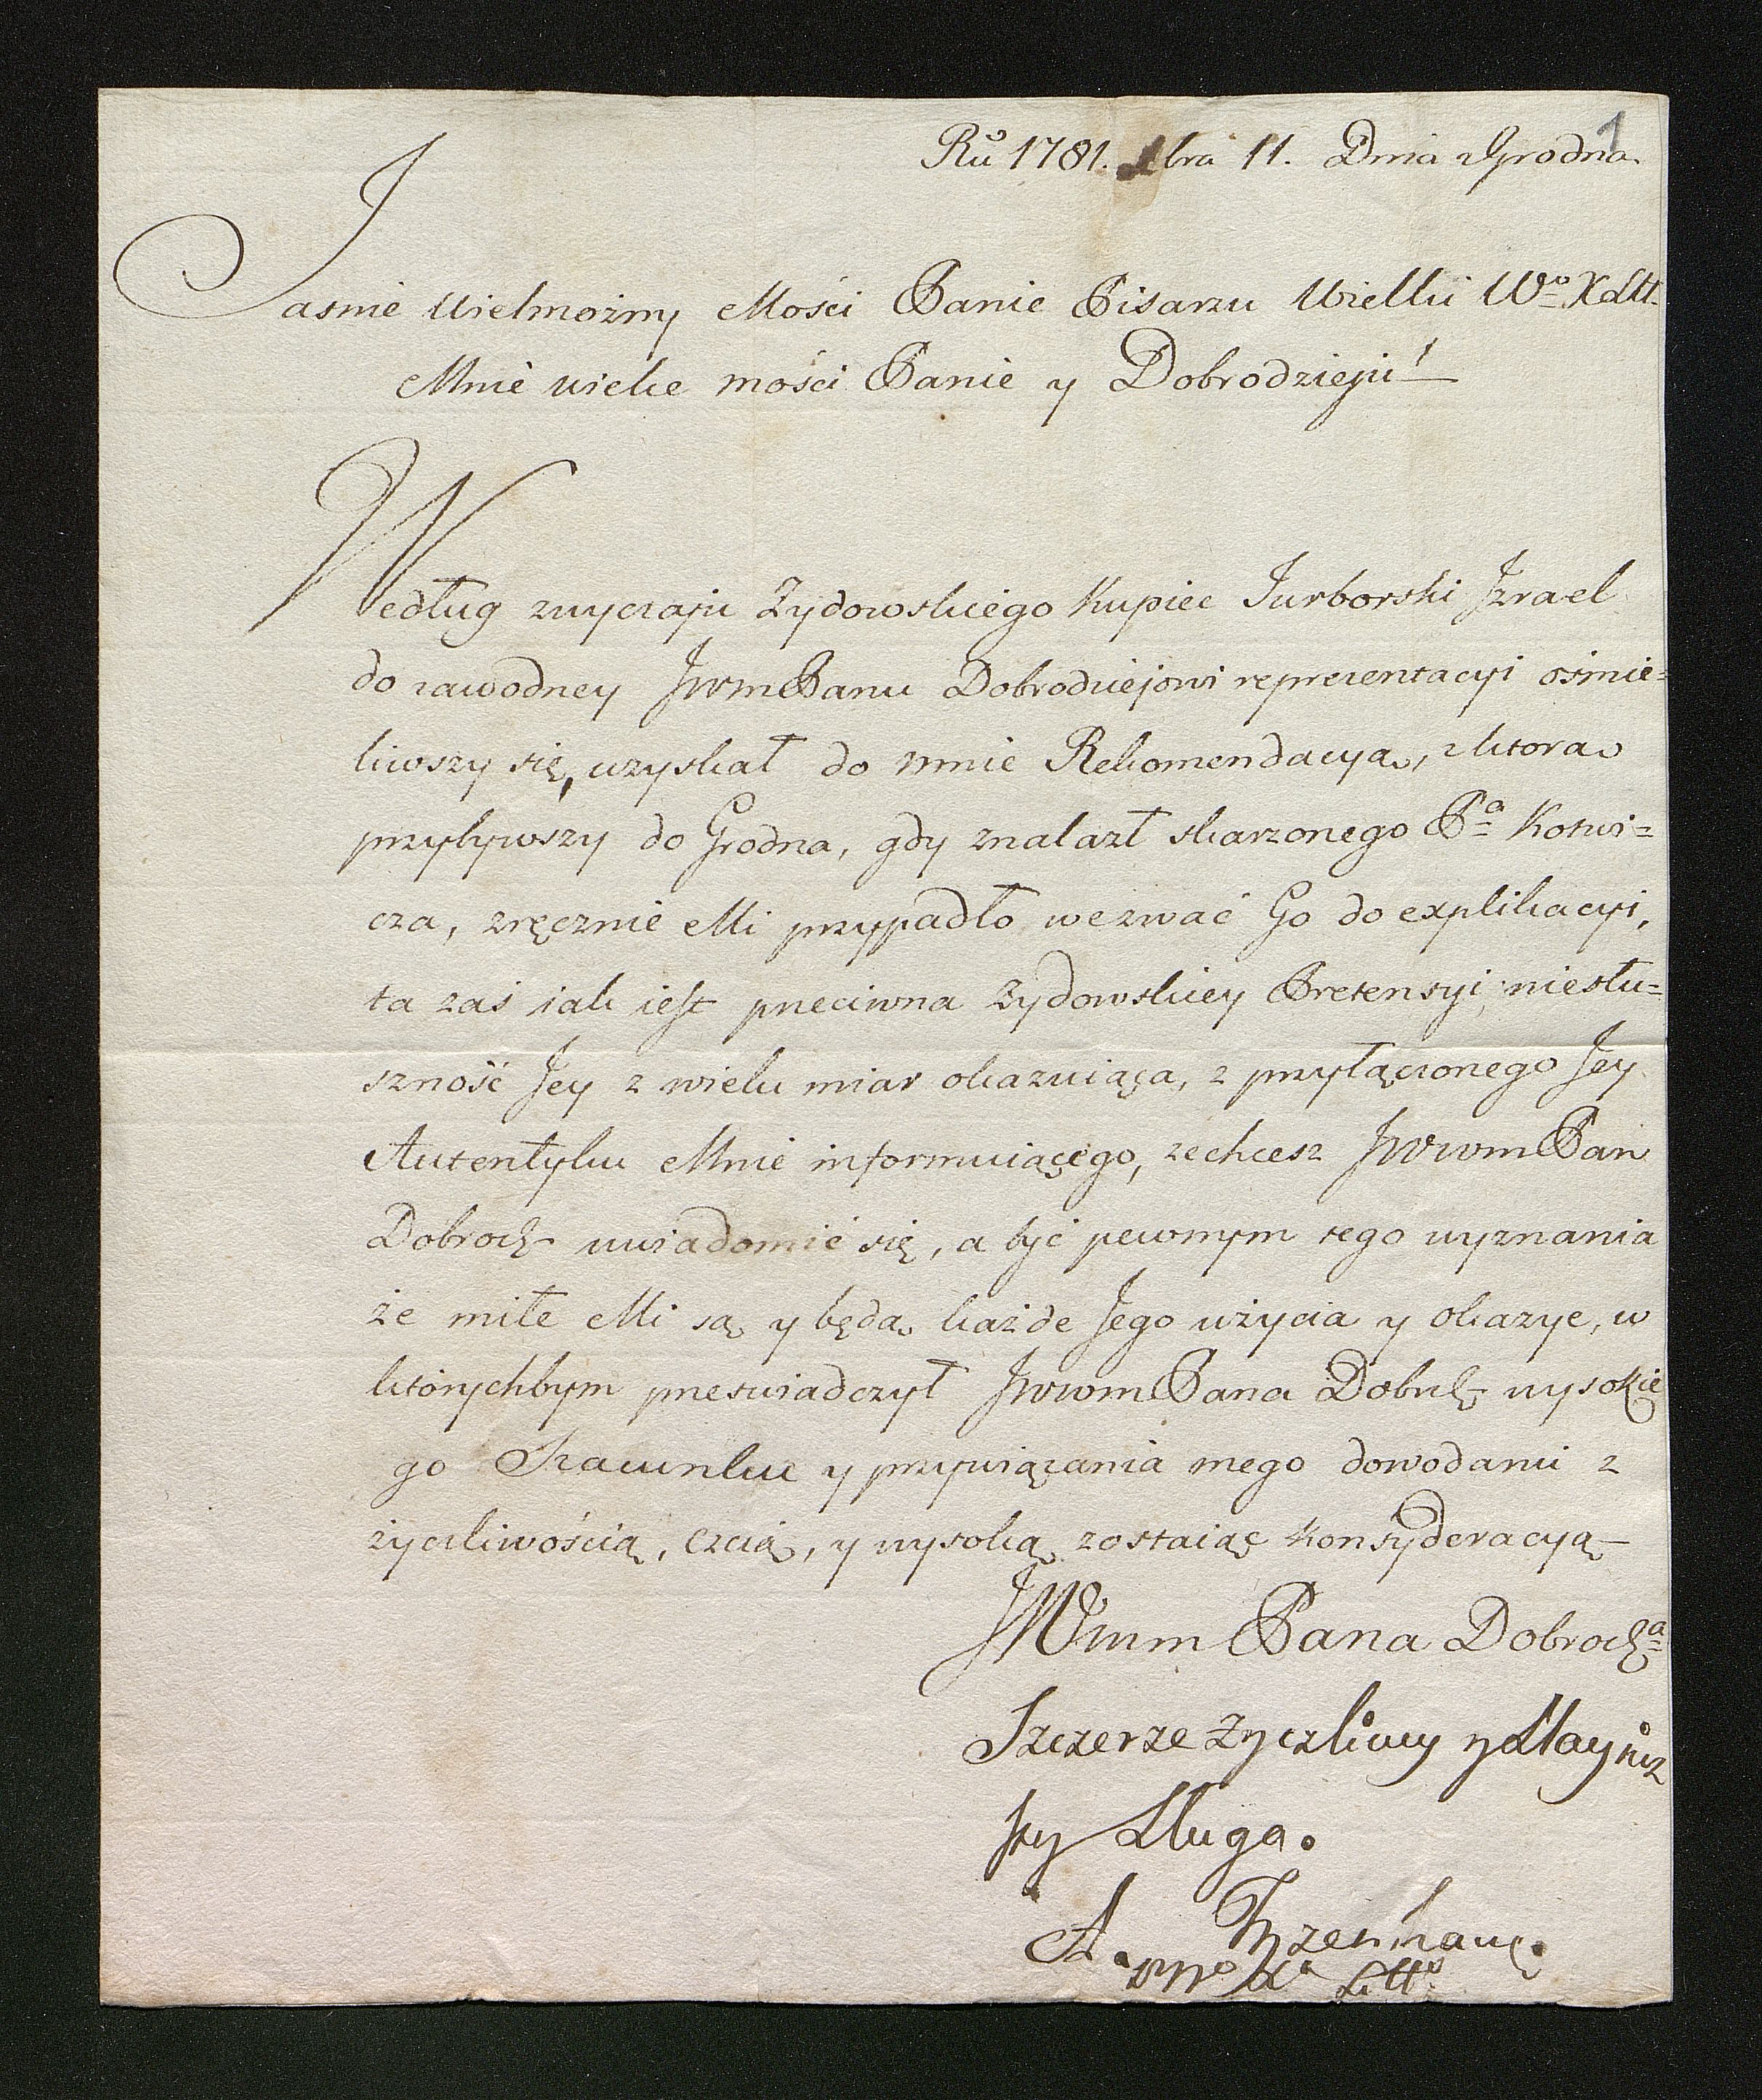 1
Ru 1781. bra 11. Dnia z Grodna
Jasnie Wielmożny Mości Panie Pisarzu Wielki Wo XLitt
Mnie wielce mości Panie y Dobrodzieju!
Według zwyczaju Zydowskiego Kupiec Jurborski Jzrael
do zawodney JWmPanu Dobrodziejowi reprezentacyi ośmie=
liwszy się, uzyskał do mnie Rekomendacyą, z ktorą
przybywszy do Grodna, gdy znalazł skarzonego Pa Kotwi=
cza, zręcznie Mi przypadło wezwać Go do explikacyi,
ta zaś iak iest przeciwna Zydowskiey Pretensyi, niesłu=
szność Jey z wielu miar okazuiąca, z przyłączonego Jey
Autentyku Mnie informuiącego, zechcesz JWWmPan
Dobrodz uwiadomić się, a być pewnym tego wyznania
że miłe Mi są y będą każde Jego użycia y okazye, w
ktorychbym przeswiadczył JWWmPana Dobrdz wysokie
go Szacunku y przywiązania mego dowodami z
życzliwością, czcią, y wysoką zostaiąc konsyderacyą
JWWmm Pana Dobrodza
Szczerze Zyczliwy y Nayniz
szy Sługa.
A Tyzenhauz.
Litt